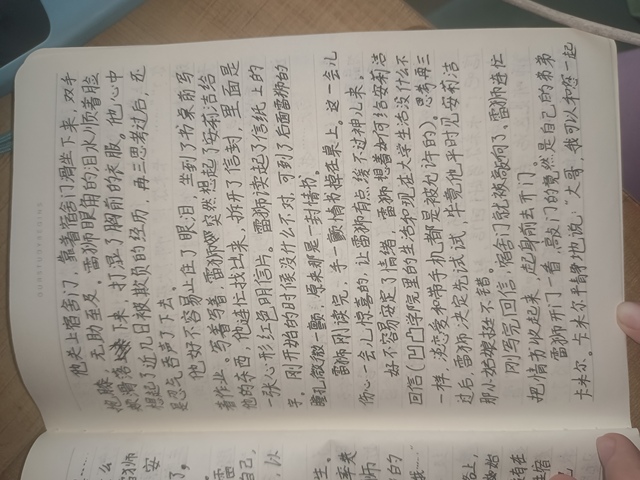 他关上宿舍门，靠着宿舍门滑坐下来，双手
抱膝，无助至及，雷狮眼角的泪水顺着脸
颊滑落下来，打湿了胸前的衣服。他心中
想起了近几日被欺负的经历，再三思考过后，还
是忍气吞声了下去。
他好不容易止住了眼泪，坐到了书桌前写
着作业。写着写着，雷狮突然想起了安莉洁给
他的东西，他连忙找出来，拆开了信封，里面是
一张心形红色明信片。雷狮读起了信纸上的
字，刚开始的时候没什么不对，可到了后面雷狮的
瞳孔微微一颤，原来那是一封情书。
雷狮刚读完，手一颤情书掉在桌上。这一会儿
伤心一会儿惊喜的，让雷狮有点缓不过神儿来，
好不容易安定了情绪，雷狮想着如何给安莉洁
回信（凹凸学院里的生活和现在大学生活没什么不
一样，谈恋爱和带手机都是被允许的）。思考再三
过后，雷狮决定先试试，毕竟他平时见安莉洁
那小姑娘挺不错。
刚写完回信，宿舍门就被敲响了，雷狮连忙
把情书收起来，起身前去开门。
雷狮开门一看，敲门的竟然是自己的弟弟
卡米尔。卡米尔平静地说：“大哥，我可以和您一起